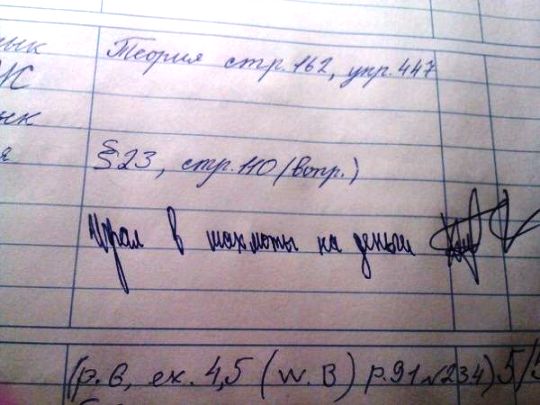 Теория стр. 162, упр. 447
§ 23, стр. 110 (вопр.)
Играл в шахматы на деньги
(p. B, ex. 4,5 (W. B) p. 91 №234) 5/